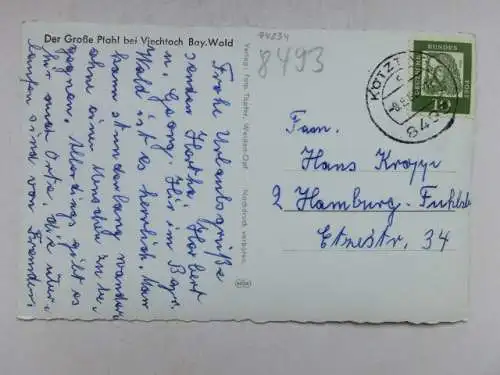 Der Große Pfahl bei Viechtach Bay. Wald
94234
8493
Frohe Urlaubsgrüße
senden Hertha, Herbert
u. Georg. Hier im Bayr.
Wald ist es herrlich. Man
kann stundenlang wandern
ohne einen Menschen zu be-
gegnen. Allerdings gibt es
hier auch Orte, die über-
laufen sind von Fremden.
Verlag: Foto Weiden-Opf. Nachdruck verboten.
KÖTZT
849
DEUTSCHE
BUNDES
POST
10
Fam.
Hans Kropp
2 Hamburg-Fuhlsb.
Etzestr. 34